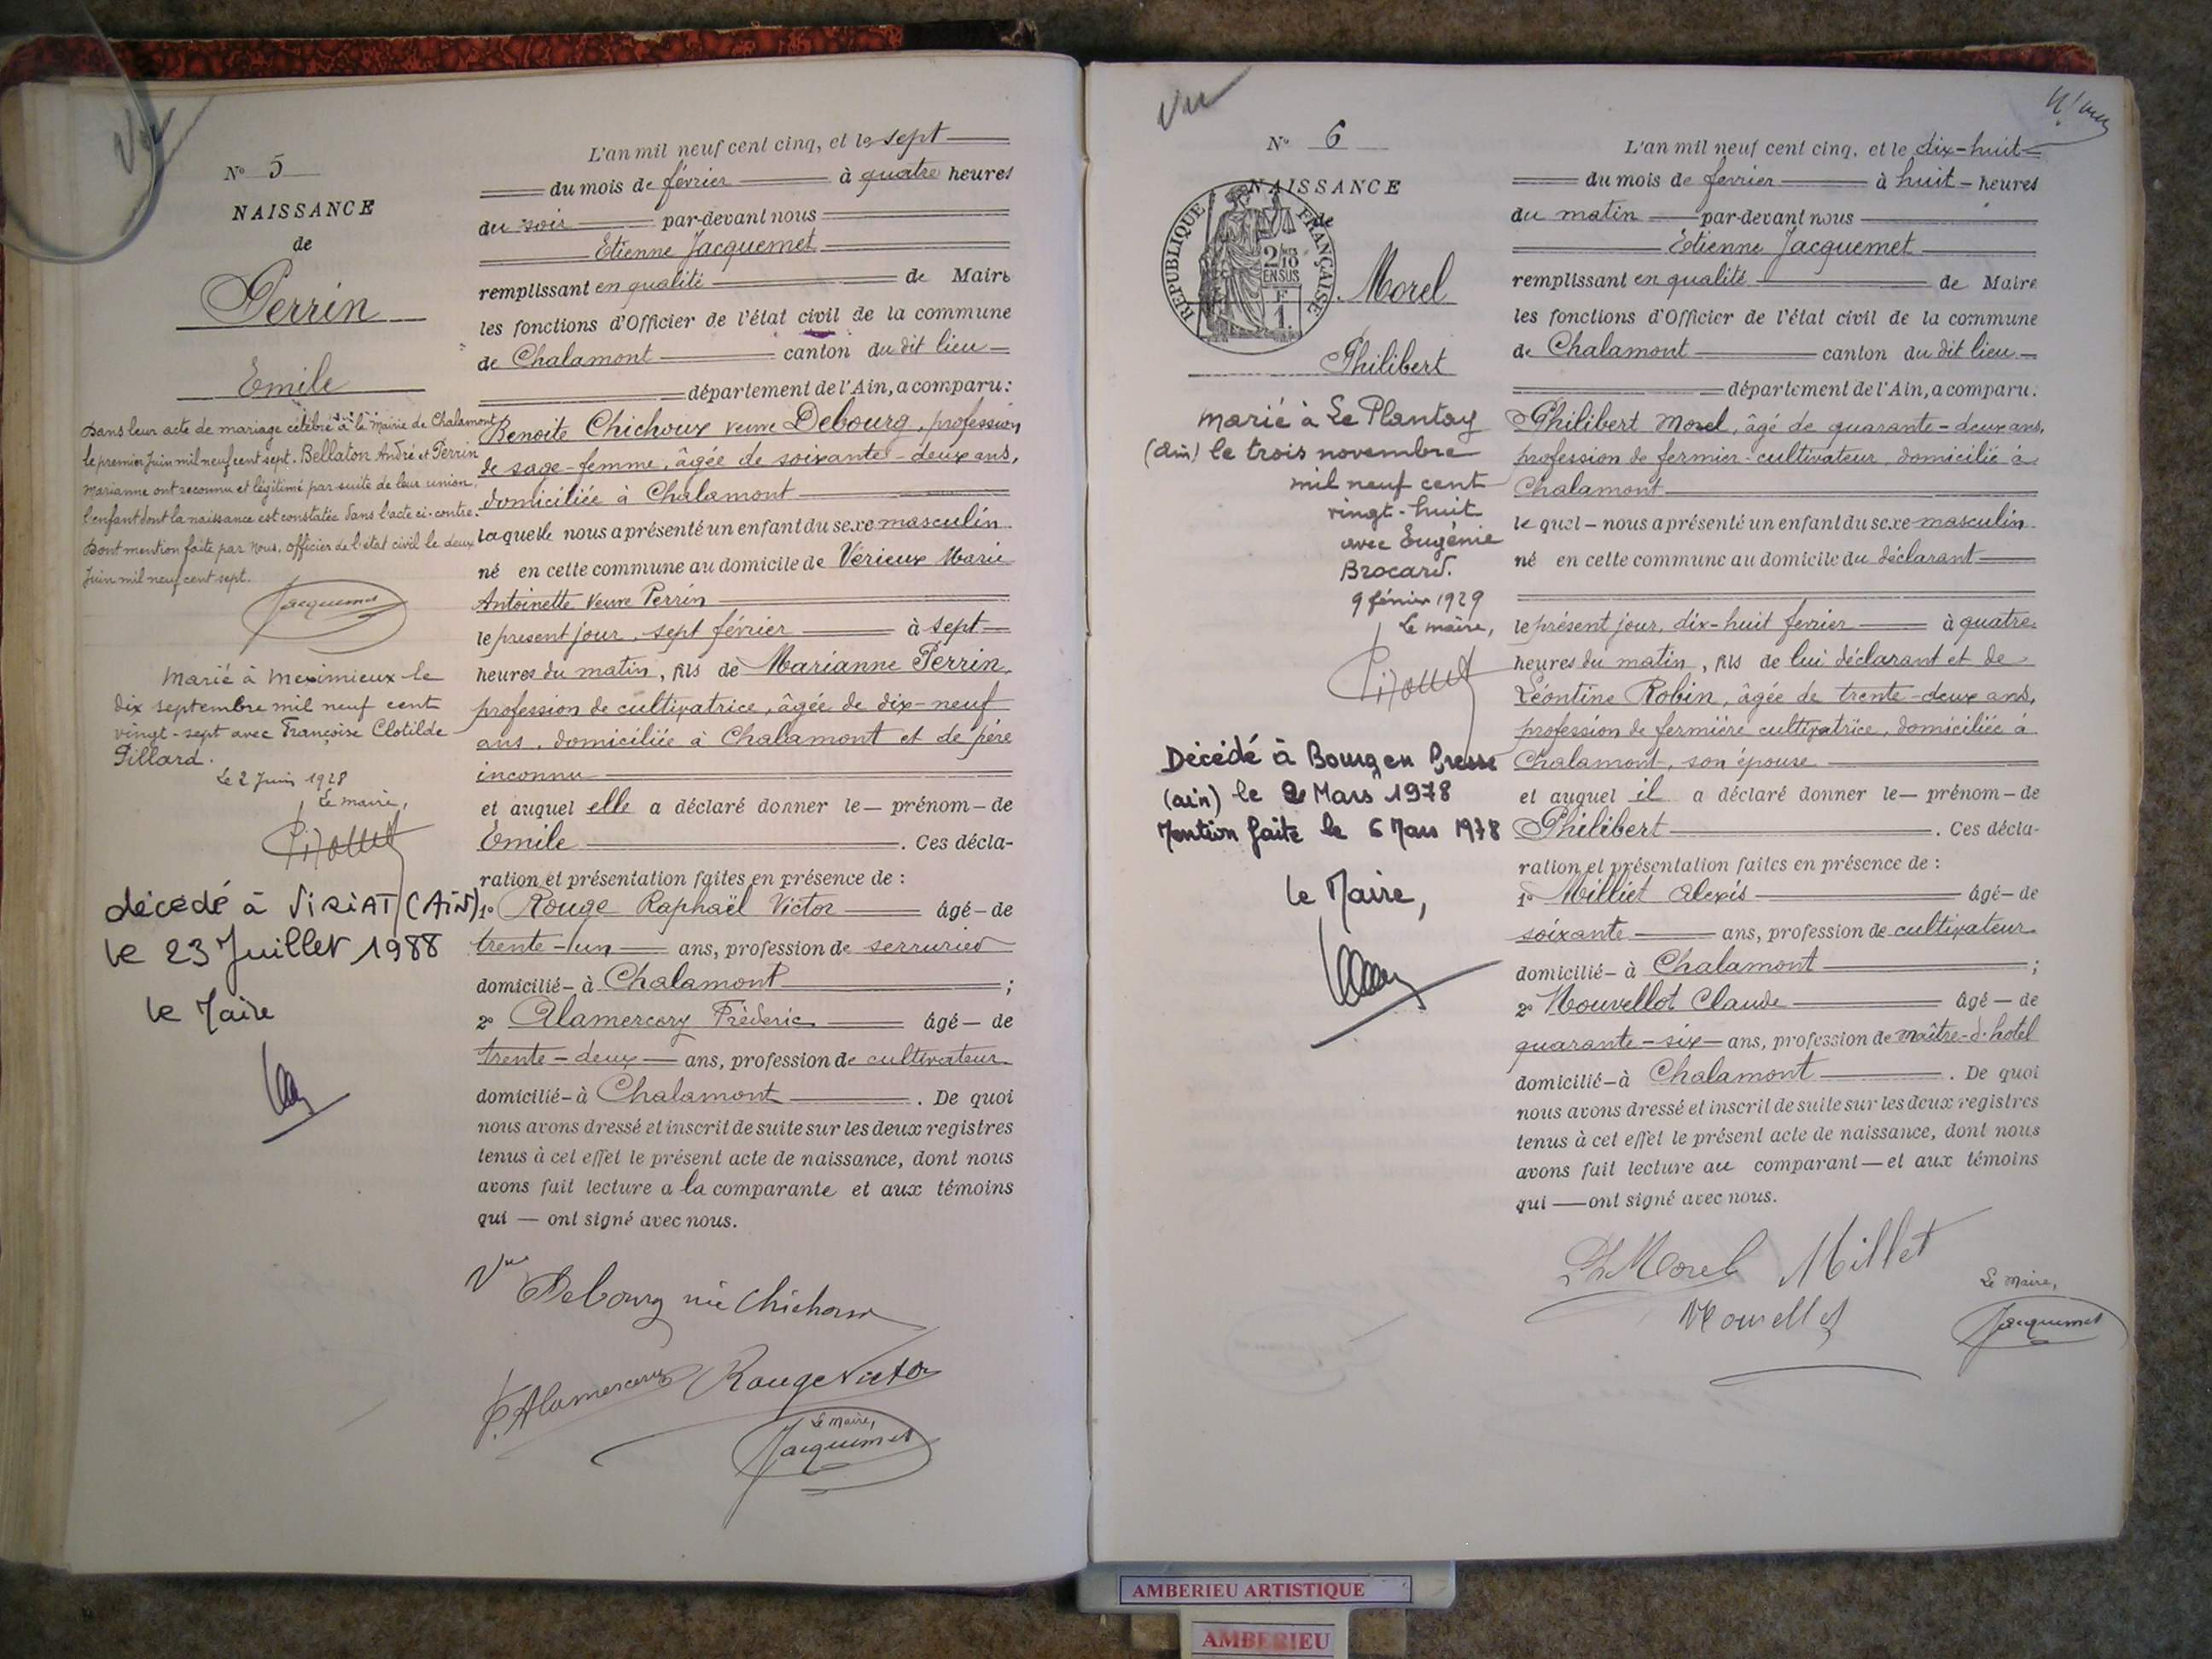 Vu
N° 5
NAISSANCE
de
Perrin
Emile
Dans leur acte de mariage célébré à la Mairie de Chalamont
le premier Juin mil neuf cent sept. Bellaton André et Perrin
Marianne ont reconnu et légitimé par suite de leur union,
l'enfant dont la naissance est constatée dans l'acte ci-contre.
Dont mention faite par Nous, officier de l'état civil le deux
Juin mil neuf cent sept.
Jacquemet
Marié à Meximieux le
dix septembre mil neuf cent
vingt-sept avec Françoise Clotilde
Pillard.
Le 2 Juin 1928
Le maire,
décédé à VIRIAT (AiN)
le 23 Juillet 1988
le Maire
L'an mil neuf cent cinq, et le sept
du mois de février à quatre heures
du soir par-devant nous
Etienne Jacquemet
remplissant en qualité de Maire
les fonctions d'Officier de l'état civil de la commune
de Chalamont canton du dit lieu
département de l'Ain, a comparu:
Benoite Chichoux veuve Debourg, profession
de sage-femme, âgée de soixante-deux ans,
domiciliée à Chalamont
laquelle nous a présenté un enfant du sexe masculin
né en cette commune au domicile de Vérieux Marie
Antoinette Veuve Perrin
le présent jour, sept février à sept
heures du matin, fils de Marianne Perrin,
profession de cultivatrice, âgée de dix-neuf
ans, domiciliée à Chalamont et de père
inconnu
et auquel elle a déclaré donner le — prénom — de
Emile . Ces décla-
ration et présentation faites en présence de :
1° Rouge Raphaël Victor âgé — de
trente-un ans, profession de serrurier
domicilié — à Chalamont ;
2° Alamercery Fréderic âgé — de
trente-deux ans, profession de cultivateur
domicilié — à Chalamont . De quoi
nous avons dressé et inscrit de suite sur les deux registres
tenus à cet effet le présent acte de naissance, dont nous
avons fait lecture a la comparante et aux témoins
qui — ont signé avec nous.
Vve Debourg née Chichoux
F. Alamercery Rouge Victor
Le Maire,
Jacquemet
Vu
N° 6
NAISSANCE
de
REPUBLIQUE FRANÇAISE
2/10
EN SUS
F
1.
Morel
Philibert
Marié à Le Plantay
(Ain) le trois novembre
mil neuf cent
vingt-huit
avec Eugénie
Brocard.
9 février 1929
Le maire,
Décédé à Bourg en Bresse
(ain) le 2 Mars 1978
Mention faite le 6 Mars 1978
le Maire,
L'an mil neuf cent cinq, et le dix-huit
du mois de fevrier à huit — heures
du matin par-devant nous
Etienne Jacquemet
remplissant en qualité de Maire
les fonctions d'Officier de l'état civil de la commune
de Chalamont canton du dit lieu
département de l'Ain, a comparu:
Philibert Morel, âgé de quarante-deux ans,
profession de fermier-cultivateur, domicilié à
Chalamont
lequel — nous a présenté un enfant du sexe masculin
né en cette commune au domicile du déclarant
le présent jour, dix-huit fevrier à quatre
heures du matin, fils de lui déclarant et de
Léontine Robin, âgée de trente-deux ans,
profession de fermière cultivatrice, domiciliée à
Chalamont, son épouse
et auquel il a déclaré donner le — prénom — de
Philibert . Ces décla-
ration et présentation faites en présence de :
1° Milliet Alexis âgé — de
soixante ans, profession de cultivateur
domicilié — à Chalamont ;
2° Nouvellot Claude âgé — de
quarante-six ans, profession de maître-d'hotel
domicilié — à Chalamont . De quoi
nous avons dressé et inscrit de suite sur les deux registres
tenus à cet effet le présent acte de naissance, dont nous
avons fait lecture au comparant — et aux témoins
qui — ont signé avec nous.
Ph Morel Millet
Nouvellot
Le Maire,
Jacquemet
AMBERIEU ARTISTIQUE
AMBERIEU